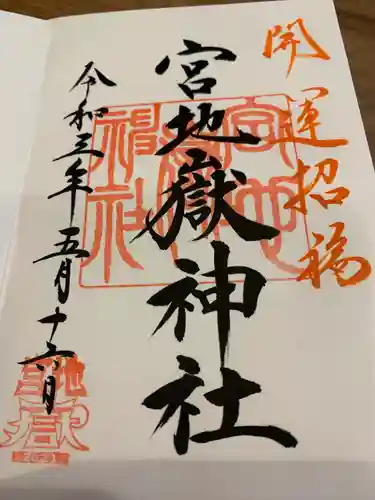 開運招福
宮地嶽神社
令和三年五月十六日
宮地嶽神社
宮地嶽